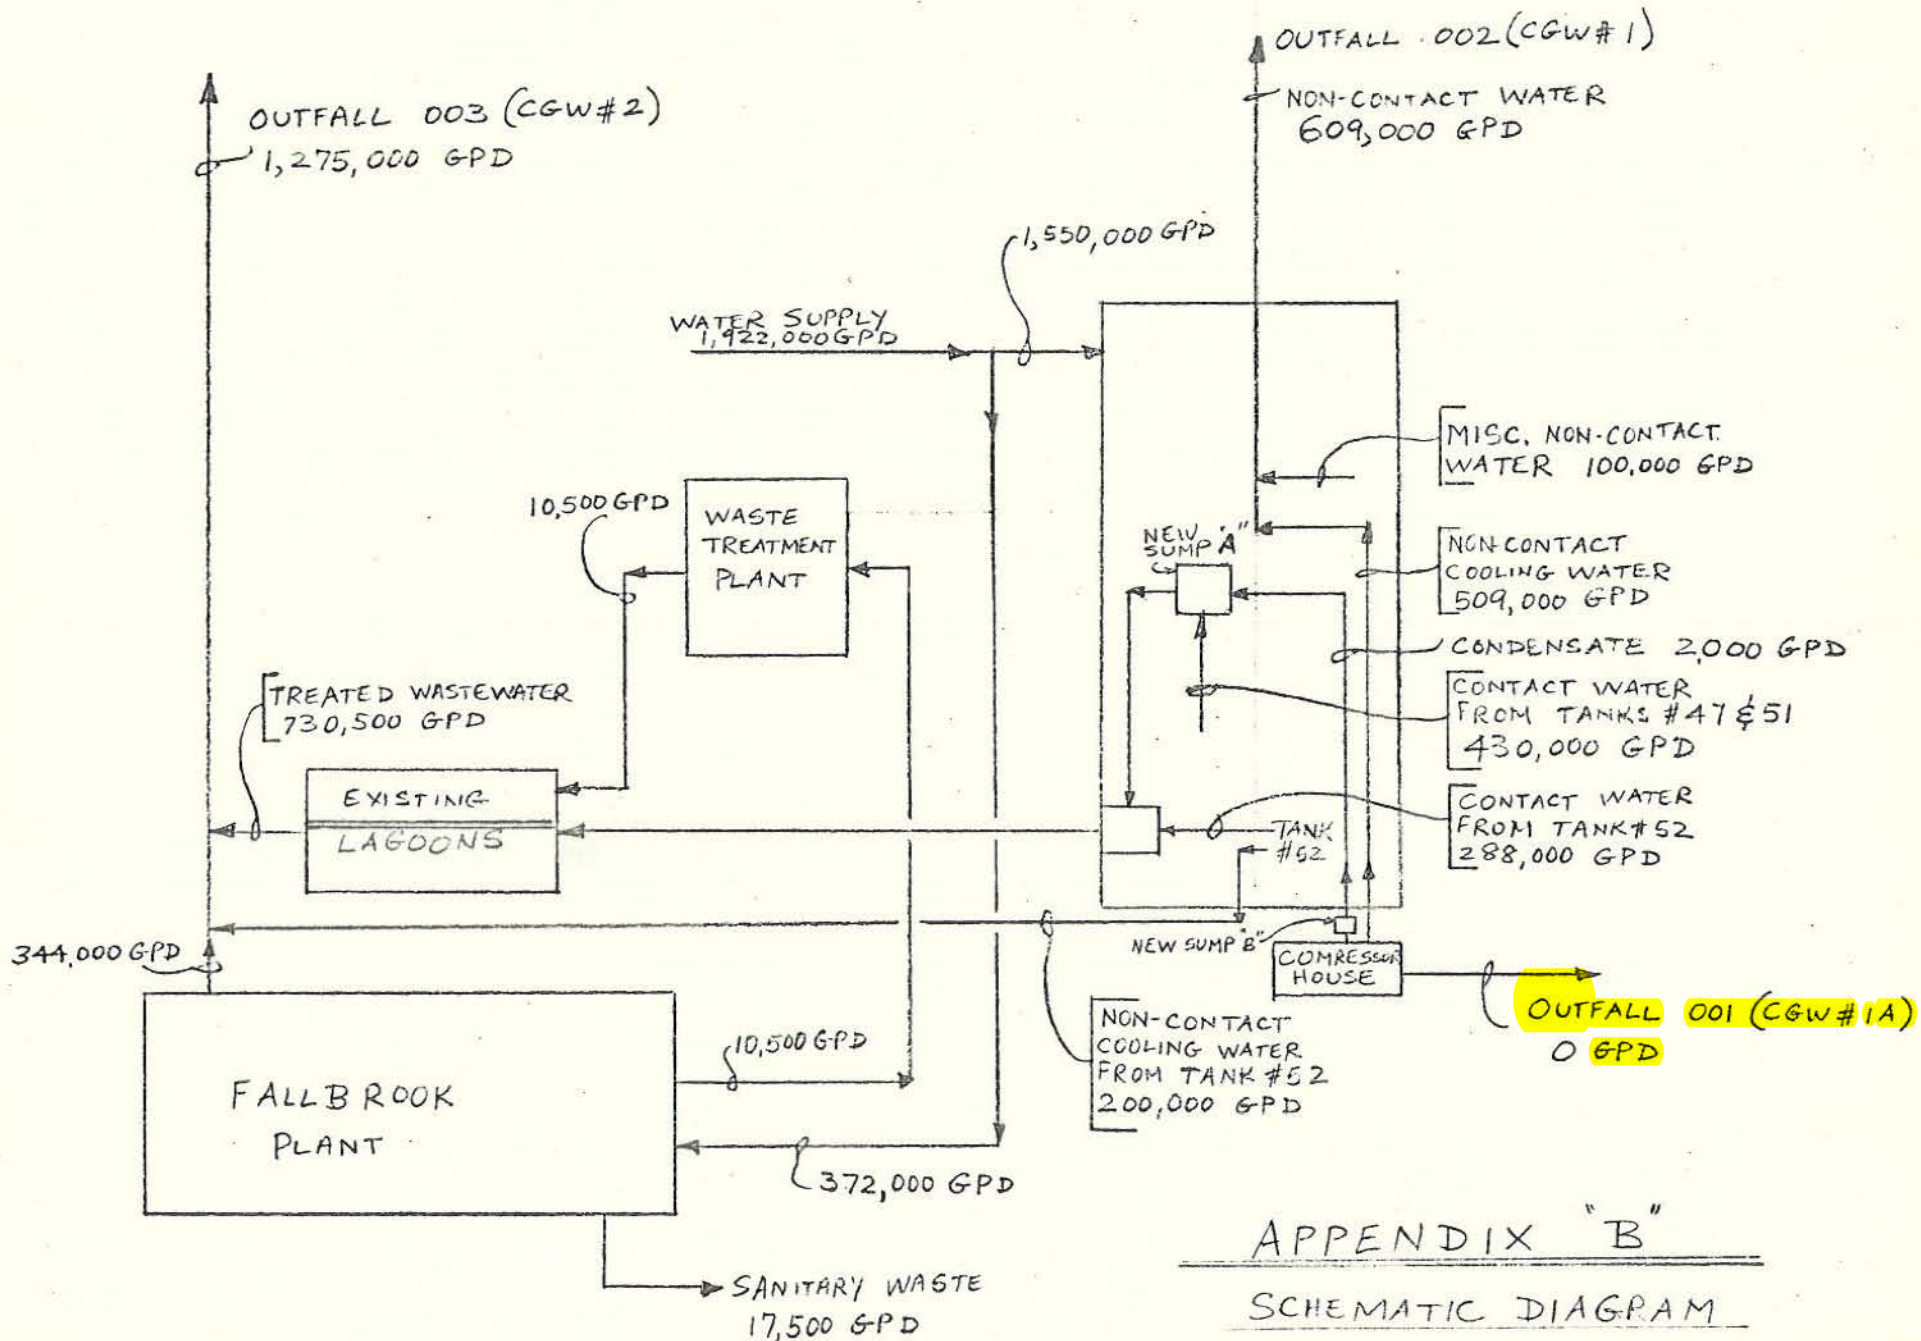 OUTFALL 002 (CGW#1)
NON-CONTACT WATER
609,000 GPD
OUTFALL 003 (CGW#2)
1,275,000 GPD
1,550,000 GPD
WATER SUPPLY
1,922,000 GPD
MISC. NON-CONTACT
WATER 100,000 GPD
10,500 GPD
WASTE
TREATMENT
PLANT
NEW
SUMP "A"
NON-CONTACT
COOLING WATER
509,000 GPD
CONDENSATE 2,000 GPD
CONTACT WATER
FROM TANKS #47 & 51
430,000 GPD
TREATED WASTEWATER
730,500 GPD
EXISTING
LAGOONS
CONTACT WATER
FROM TANK #52
288,000 GPD
TANK
#52
344,000 GPD
NEW SUMP "B"
COMRESSOR
HOUSE
OUTFALL 001 (CGW#1A)
0 GPD
NON-CONTACT
COOLING WATER
FROM TANK #52
200,000 GPD
10,500 GPD
FALLBROOK
PLANT
372,000 GPD
SANITARY WASTE
17,500 GPD
APPENDIX "B"
SCHEMATIC DIAGRAM